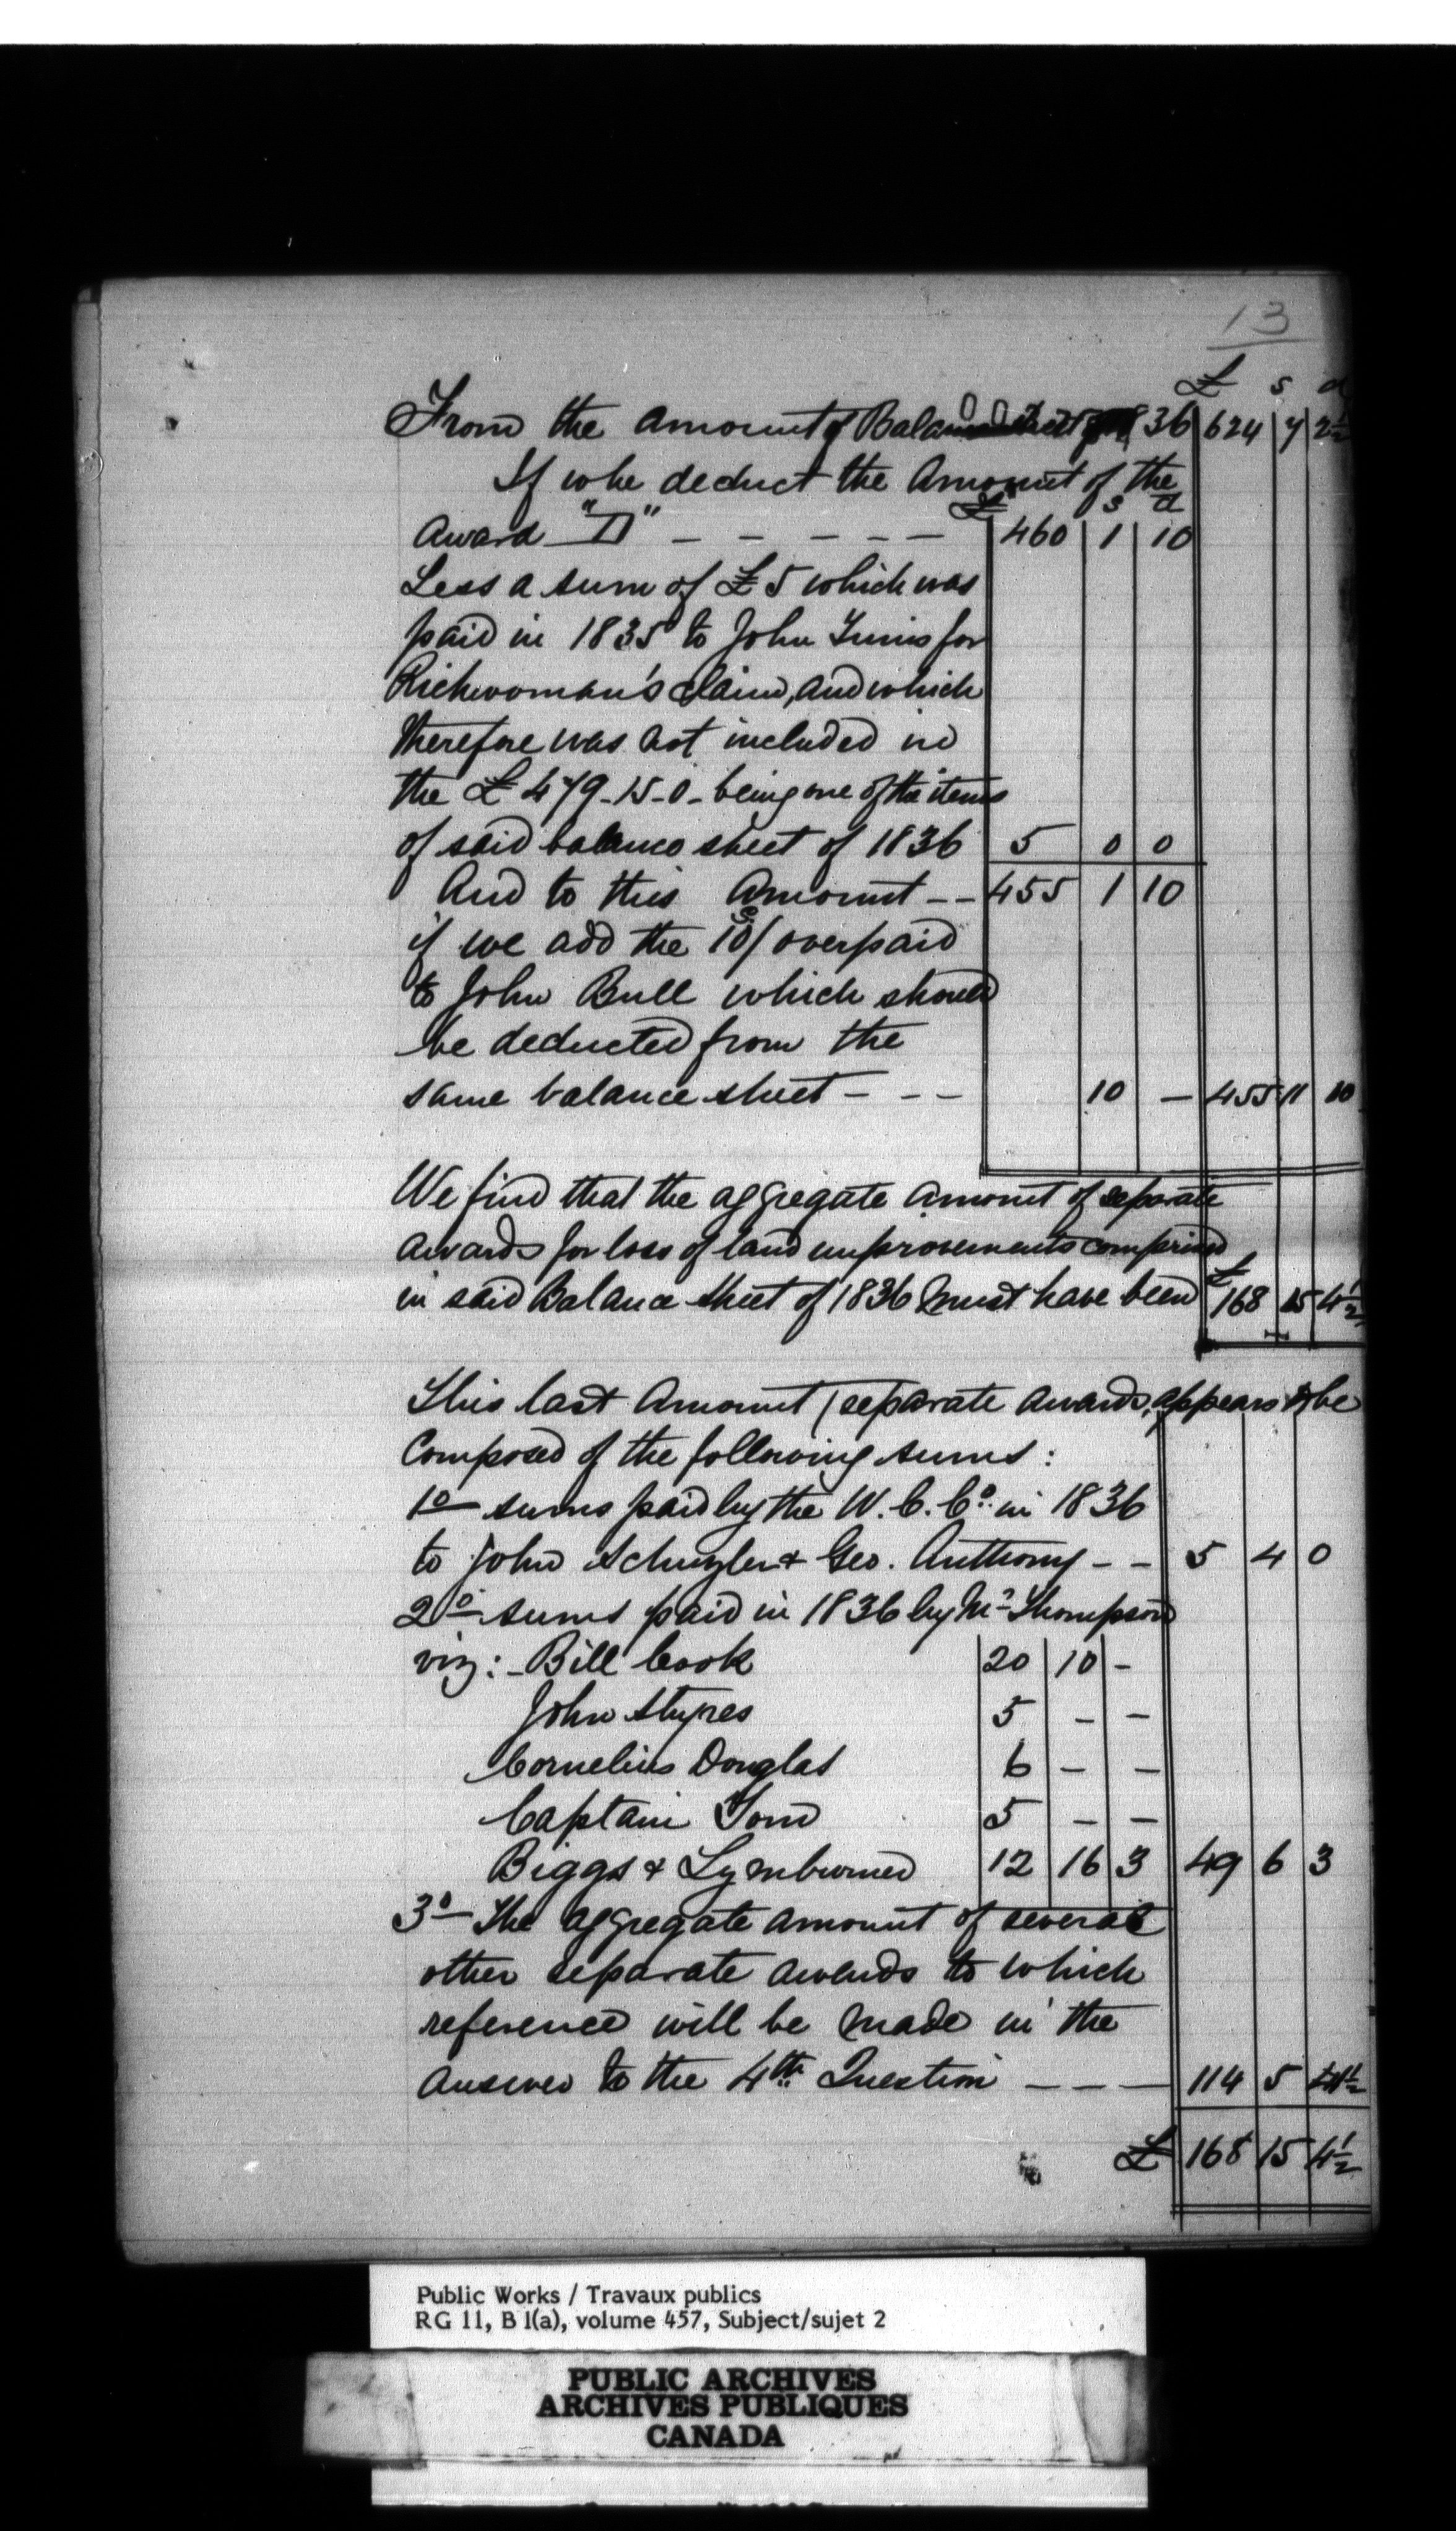 13
£ s d
From the amount of Balance Sheet 1836 624 7 2½
If whe deduct the Amount of the
£ s d
Award "D" — — — — — 460 1 10
Less a sum of £5 which was
paid in 1835 to John Tunis for
Richwoman's claim, and which
therefore was not included in
the £479-15-0- being one of the items
of said balance sheet of 1836 5 0 0
And to this Amount -- 455 1 10
if we add the 10/ overpaid
to John Bull which should
be deducted from the
same balance sheet - - - 10 — 455 11 10
We find that the aggregate amount of separate
awards for loss of land improvements comprised
in said Balance Sheet of 1836 must have been £168 15 4½
This last Amount (separate awards, appears to be
Composed of the following sums:
1º sums paid by the W. C. Cº. in 1836
to John Schuyler & Geo. Anthony - - 5 4 0
2º sums paid in 1836 by Mr Thompson
viz: - Bill Cook 20 10 -
John Stypes 5 - -
Cornelius Douglas 6 - -
Captain Tom 5 - -
Biggs & Lymburned 12 16 3 49 6 3
3º The aggregate amount of several
other separate awards to which
reference will be made in the
answer to the 4th Question — — — 114 5 1½
£ 168 15 4½
Public Works / Travaux publics
RG 11, B 1(a), volume 457, Subject/sujet 2
PUBLIC ARCHIVES
ARCHIVES PUBLIQUES
CANADA